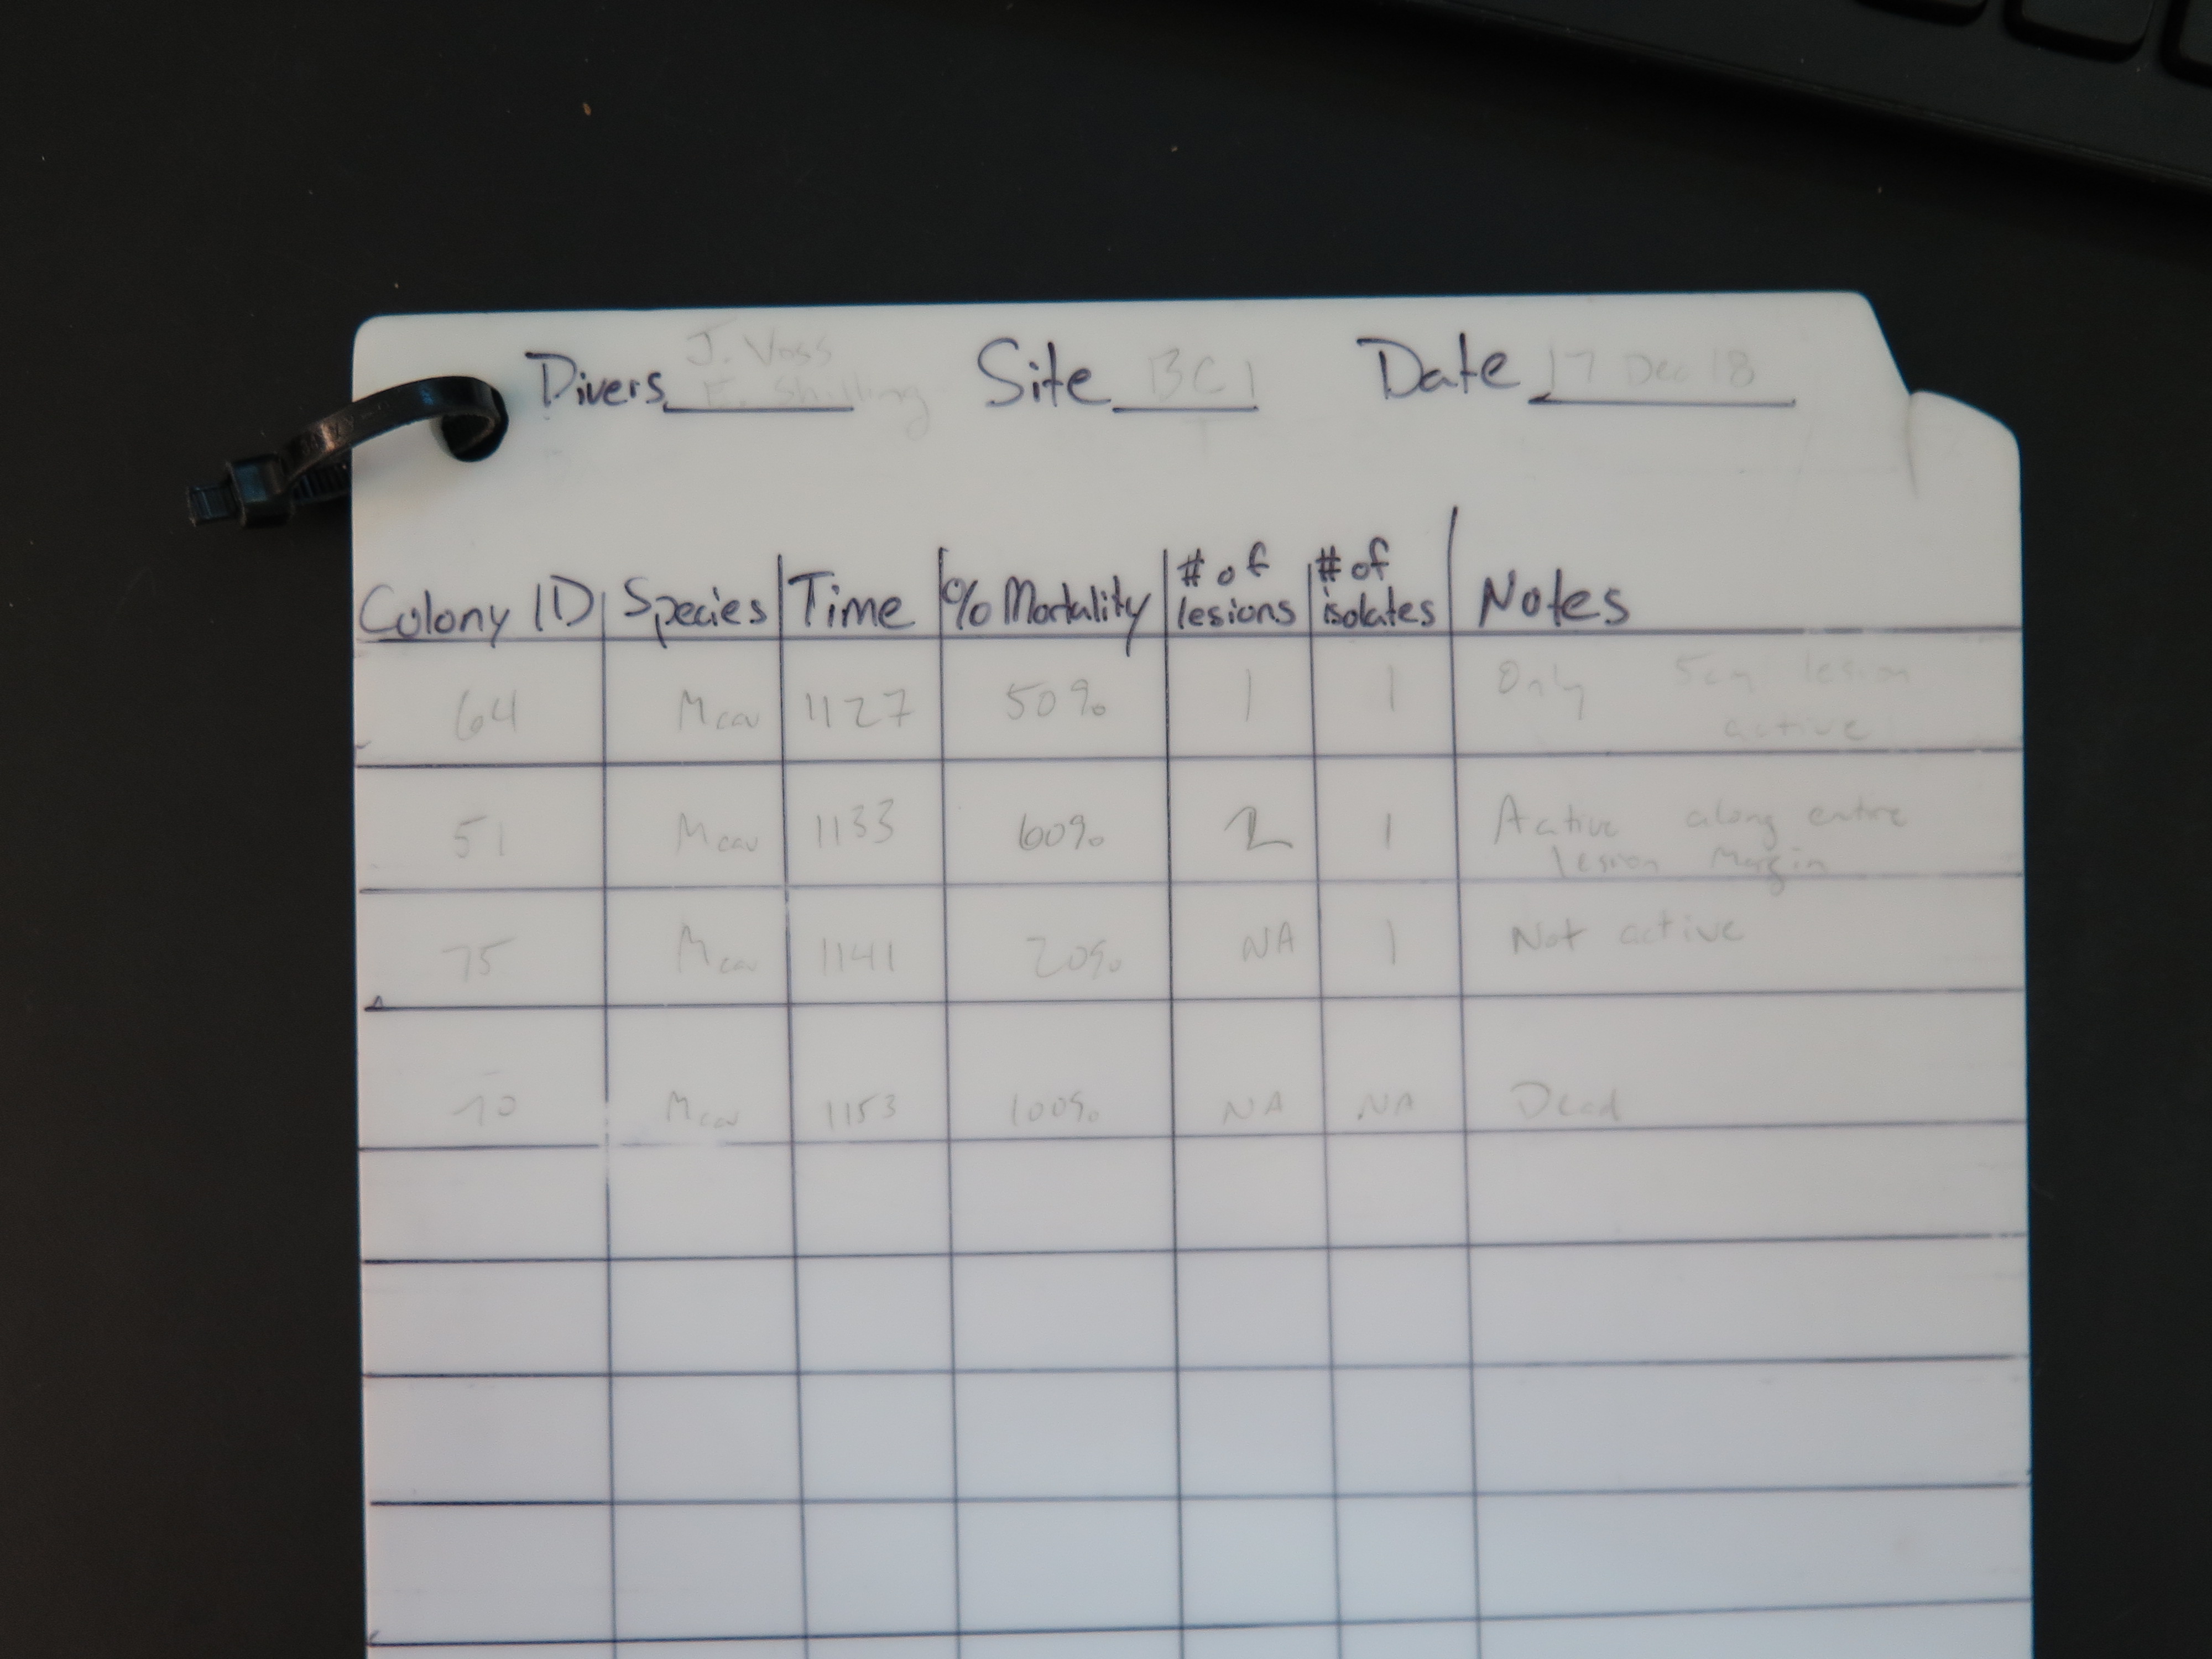 Divers J. Voss Site BC1 Date 17 Dec 18
E. Shilling
Colony ID Species Time % Mortality # of lesions # of isolates Notes
64 Mcav 1127 50% 1 1 Only 5cm lesion
active
51 Mcav 1133 60% 2 1 Active along entire
lesion Margin
75 Mcav 1141 20% NA 1 Not active
70 Mcav 1153 100% NA NA Dead